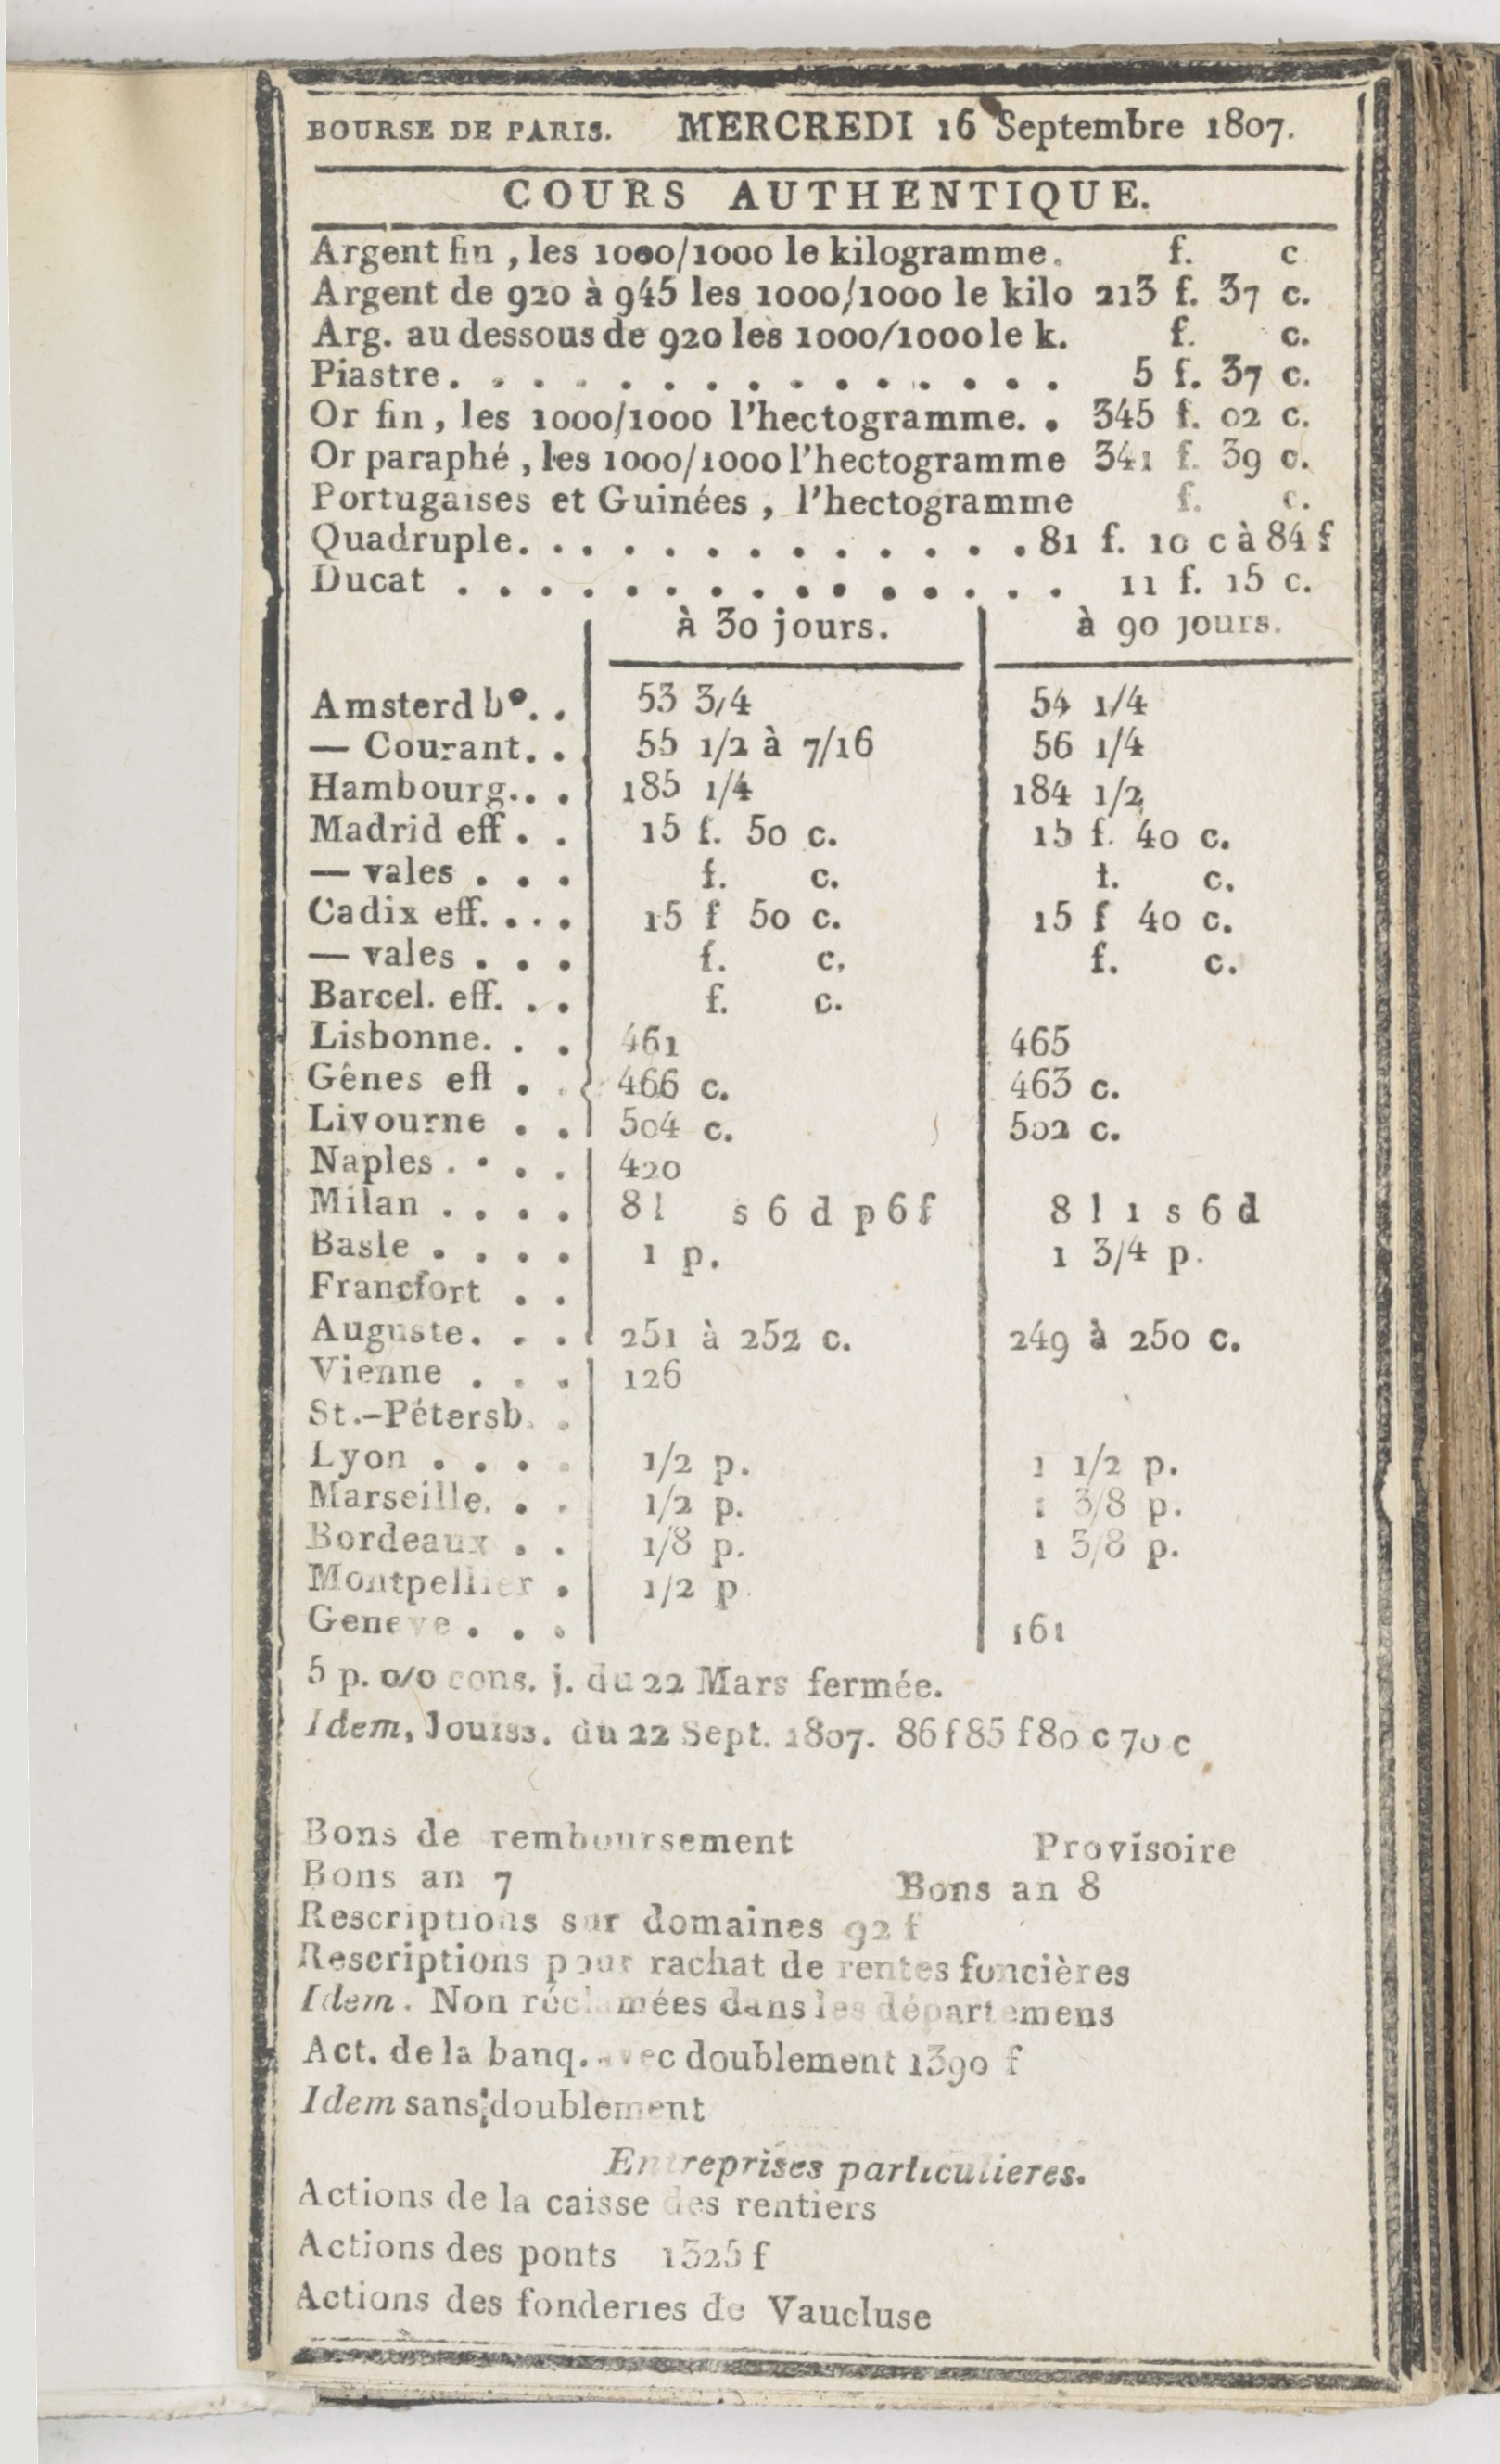 BOURSE DE PARIS. MERCREDI 16 Septembre 1807.
COURS AUTHENTIQUE.
Argent fin, les 1000/1000 le kilogramme. f. c
Argent de 920 à 945 les 1000/1000 le kilo 213 f. 37 c.
Arg. au dessous de 920 les 1000/1000 le k. f. c.
Piastre. . . . . . . . . . . . . . . 5 f. 37 c.
Or fin, les 1000/1000 l'hectogramme. . 345 f. 02 c.
Or paraphé, les 1000/1000 l'hectogramme 341 f. 39 c.
Portugaises et Guinées, l'hectogramme f. c.
Quadruple. . . . . . . . . . . . . 81 f. 10 c à 84 f
Ducat . . . . . . . . . . . . . . . 11 f. 15 c.
à 30 jours. à 90 jours.
Amsterd b°. . 53 3/4 54 1/4
— Courant. . 55 1/2 à 7/16 56 1/4
Hambourg. . . 185 1/4 184 1/2
Madrid eff . . 15 f. 50 c. 15 f. 40 c.
— vales . . . f. c. f. c.
Cadix eff. . . . 15 f 50 c. 15 f 40 c.
— vales . . . f. c. f. c.
Barcel. eff. . . f. c.
Lisbonne. . . 461 465
Gênes eff . . 466 c. 463 c.
Livourne . . 504 c. 502 c.
Naples . . . . 420
Milan . . . . 8 l s 6 d p 6 f 8 l 1 s 6 d
Basle . . . . 1 p. 1 3/4 p.
Francfort . .
Auguste. . . 251 à 252 c. 249 à 250 c.
Vienne . . . 126
St.-Pétersb. .
Lyon . . . . 1/2 p. 1 1/2 p.
Marseille. . . 1/2 p. 1 3/8 p.
Bordeaux . . 1/8 p. 1 3/8 p.
Montpellier . 1/2 p.
Geneve . . . 161
5 p. 0/0 cons. j. du 22 Mars fermée.
Idem, Jouiss. du 22 Sept. 1807. 86 f 85 f 80 c 70 c
Bons de remboursement Provisoire
Bons an 7 Bons an 8
Rescriptions sur domaines 92 f
Rescriptions pour rachat de rentes foncières
Idem. Non réclamées dans les départemens
Act. de la banq. avec doublement 1390 f
Idem sans doublement
Entreprises particulieres.
Actions de la caisse des rentiers
Actions des ponts 1325 f
Actions des fonderies de Vaucluse